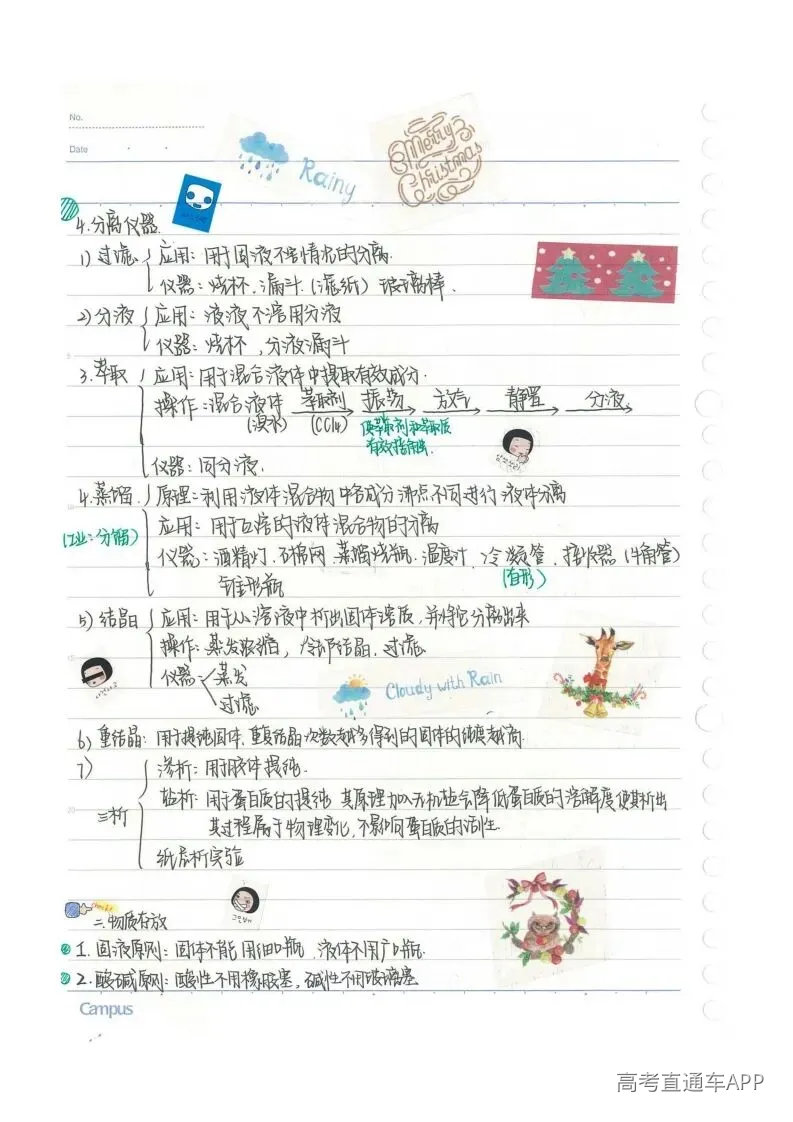 No.
Date
Rainy
Merry Christmas
4.分离仪器
1)过滤 应用：用于固液不溶情况的分离.
仪器：烧杯.漏斗.(滤纸) 玻璃棒.
2)分液 应用：液液不溶用分液
仪器：烧杯,分液漏斗
3.萃取 应用：用于混合液体中提取有效成分.
操作：混合液体 萃取剂 振荡 放气 静置 分液
(溴水) (CCl4) 使萃取剂和萃取质
有效接触.
仪器：同分液.
4.蒸馏 原理：利用液体混合物中各成分沸点不同进行液体分离
(工业：分馏) 应用：用于互溶的液体混合物的分离
仪器：酒精灯.石棉网.蒸馏烧瓶.温度计.冷凝管.接收器(牛角管)
(直形)
锥形瓶
5)结晶 应用：用于从溶液中析出固体溶质,并将它分离出来
操作：蒸发浓缩,冷却结晶.过滤.
仪器 蒸发
过滤.
Cloudy with Rain
6)重结晶：用于提纯固体.重复结晶次数越多得到的固体的纯度越高.
7) 渗析：用于胶体提纯.
三析 盐析：用于蛋白质的提纯 其原理加入无机盐会降低蛋白质的溶解度使其析出
其过程属于物理变化,不影响蛋白质的活性.
纸层析实验
check!
二.物质存放
1.固液原则：固体不能用细口瓶 液体不用广口瓶.
2.酸碱原则：酸性不用橡胶塞,碱性不用玻璃塞
Campus
高考直通车APP